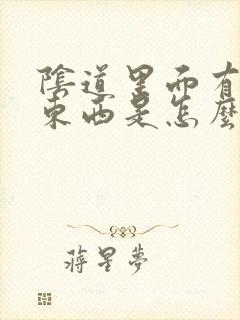 陰道里而有
東西是怎麼
蔣星夢